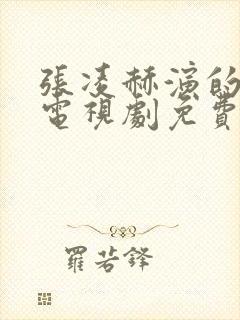 張凌赫演的
電視劇免費
羅若鋒